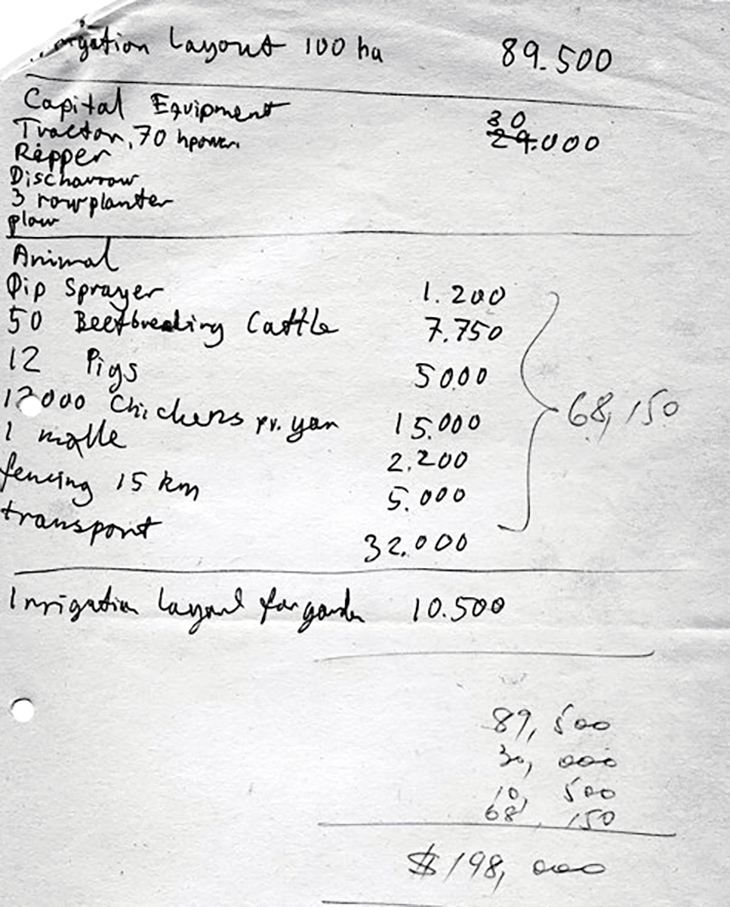 Irrigation Layout 100 ha 89.500
Capital Equipment
30
Tractor, 70 hpower. 29.000
Ripper
Discharrow
3 row planter
plow
Animal
Dip Sprayer 1.200
50 Beefbreeding Cattle 7.750
12 Pigs 5000
12000 Chickens pr. year 15.000
68,150
1 2.200
fencing 15 km 5.000
transport 32.000
Irrigation layout for garden 10.500
89, 500
30, 000
10, 500
68, 150
$198, 000